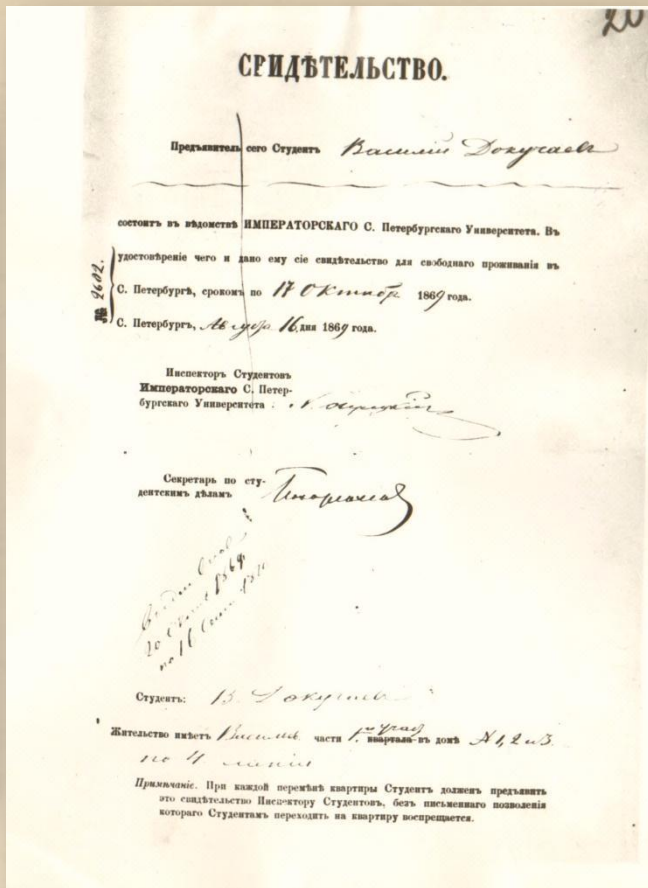 20
СВИДѢТЕЛЬСТВО.
Предъявитель сего Студентъ Василій Докучаевъ
состоитъ въ вѣдомствѣ ИМПЕРАТОРСКАГО С. Петербургскаго Университета. Въ
удостовѣреніе чего и дано ему сіе свидѣтельство для свободнаго проживанія въ
С. Петербургѣ, срокомъ по 17 Октябр 1869 года.
С. Петербургъ, Августа 16 дня 1869 года.
№ 2602.
Инспекторъ Студентовъ
Императорскаго С. Петер-
бургскаго Университета:
Секретарь по сту-
дентскимъ дѣламъ
20 1869
по 16
Студентъ: В. Докучаевъ
Жительство имѣетъ Василь части 1. квартала въ домѣ № 1, 2 и 3
по 4 линіи
Примѣчаніе. При каждой перемѣнѣ квартиры Студентъ долженъ предъявить
это свидѣтельство Инспектору Студентовъ, безъ письменнаго позволенія
котораго Студентамъ переходить на квартиру воспрещается.